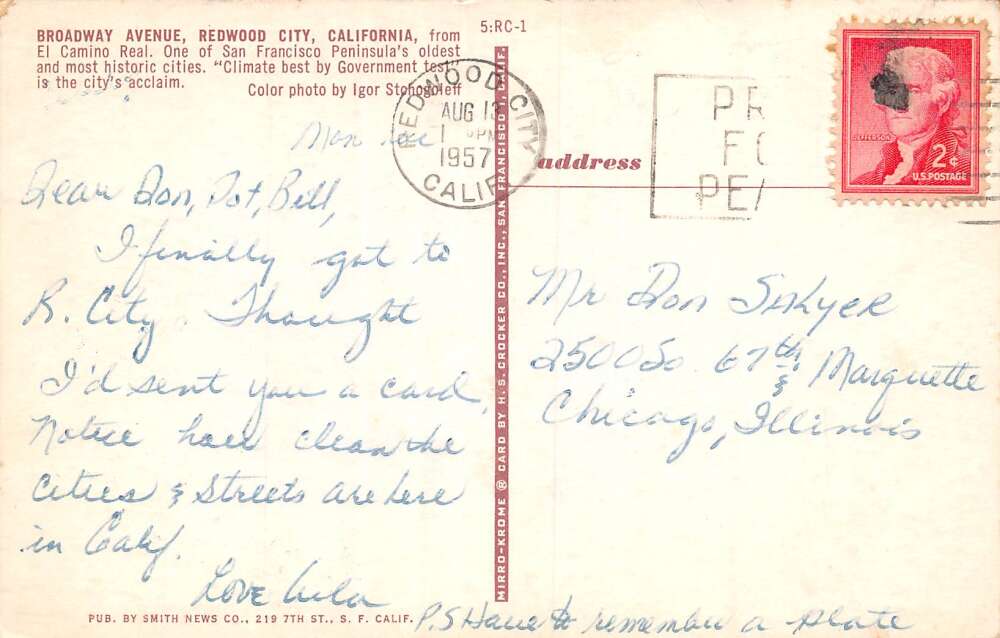 BROADWAY AVENUE, REDWOOD CITY, CALIFORNIA, from
El Camino Real. One of San Francisco Peninsula's oldest
and most historic cities. "Climate best by Government test"
is the city's acclaim.
Color photo by Igor Stohogoleff
5:RC-1
REDWOOD CITY
AUG 12
1 PM
1957
CALIF
address
PR
FO
PEA
JEFFERSON
2¢
U.S. POSTAGE
Mon
Dear Don, Dot, Bill,
I finally got to
R. City. Thought
I'd sent you a card.
Notice how clean the
Cities & Streets are here
in Calif.
Love
P.S Have to remember a plate
Mr Don
2500 So. 67th & Marquette
Chicago, Illinois
MIRRO-KROME ® CARD BY H. S. CROCKER CO., INC., SAN FRANCISCO, CALIF.
PUB. BY SMITH NEWS CO., 219 7TH ST., S. F. CALIF.